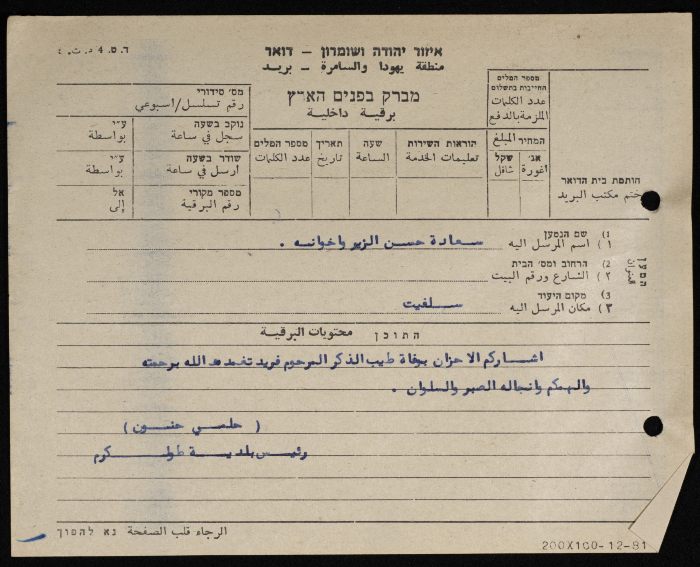 ד.ס. 4 ד.ת.
איזור יהודה ושומרון - דואר
منطقة يهودا والسامرة - بريد
מברק בפנים הארץ
برقية داخلية
מספר המלים
החייבות בתשלום
عدد الكلمات
الملزمة بالدفع
המחיר المبلغ
אג׳ שקל
اغورة شاقل
חותמת בית הדואר
ختم مكتب البريد
הוראות השירות
تعليمات الخدمة
שעה
الساعة
תאריך
تاريخ
מספר המלים
عدد الكلمات
מס׳ סידורי
رقم تسلسل/اسبوعي
נוקב בשעה ע״י
سجل في ساعة بواسطة
שודר בשעה ע״י
ارسل في ساعة بواسطة
מספר מקורי אל
رقم البرقية إلى
המען
العنوان
1) שם הנמען
١) اسم المرسل اليه سعادة حسن الزير واخوانه .
2) הרחוב ומס׳ הבית
٢) الشارع ورقم البيت
3) מקום היעוד
٣) مكان المرسل اليه سلفيت
התוכן محتويات البرقية
اشارككم الاحزان بوفاة طيب الذكر المرحوم فريد تغمده الله برحمته
والهمكم وانجاله الصبر والسلوان .
( حلمي حنون )
رئيس بلدية طولكرم
الرجاء قلب الصفحة נא להפוך
200X100-12-81